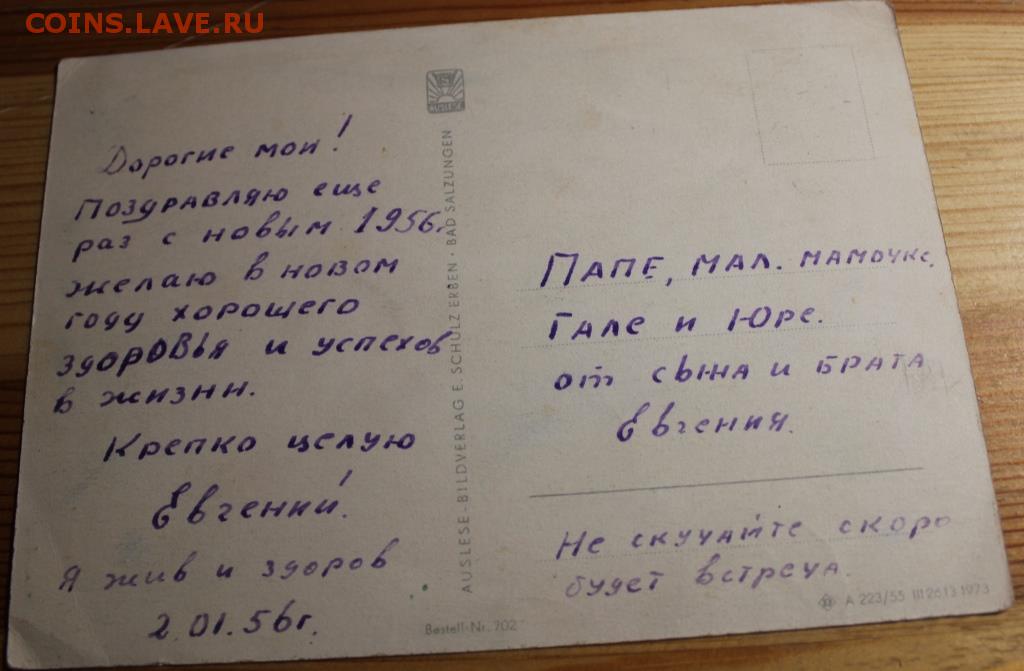 COINS.LAVE.RU
Дорогие мои!
Поздравляю еще
раз с новым 1956г.
желаю в новом
году хорошего
здоровья и успехов
в жизни.
Крепко целую
Евгений.
Я жив и здоров
2.01.56г.
AUSLESE-BILDVERLAG E. SCHULZ ERBEN · BAD SALZUNGEN
Bestell-Nr. 702
Папе, мал. мамочке,
Гале и Юре.
от сына и брата
Евгения.
Не скучайте скоро
будет встреча.
A 223/55 III 26 13 1973